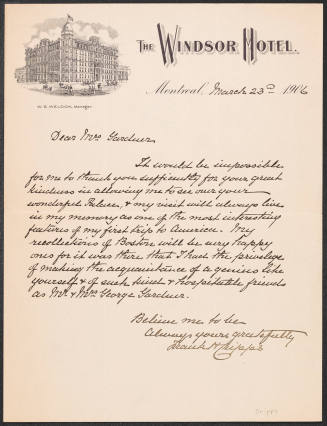 THE WINDSOR HOTEL.
W. S. WELDON, Manager.
Montreal, March 23rd 1906
Dear Mrs. Gardner,
It would be impossible
for me to thank you sufficiently for your great
kindness in allowing me to see over your
wonderful Palace, & my visit will always live
in my memory as one of the most interesting
features of my first trip to America. My
recollections of Boston will be very happy
ones for it was there that I had the privilege
of making the acquaintance of a genius like
yourself & of such kind & hospitable friends
as Mr. & Mrs. George Gardner.
Believe me to be
Always yours gratefully
Frank H. Cripps